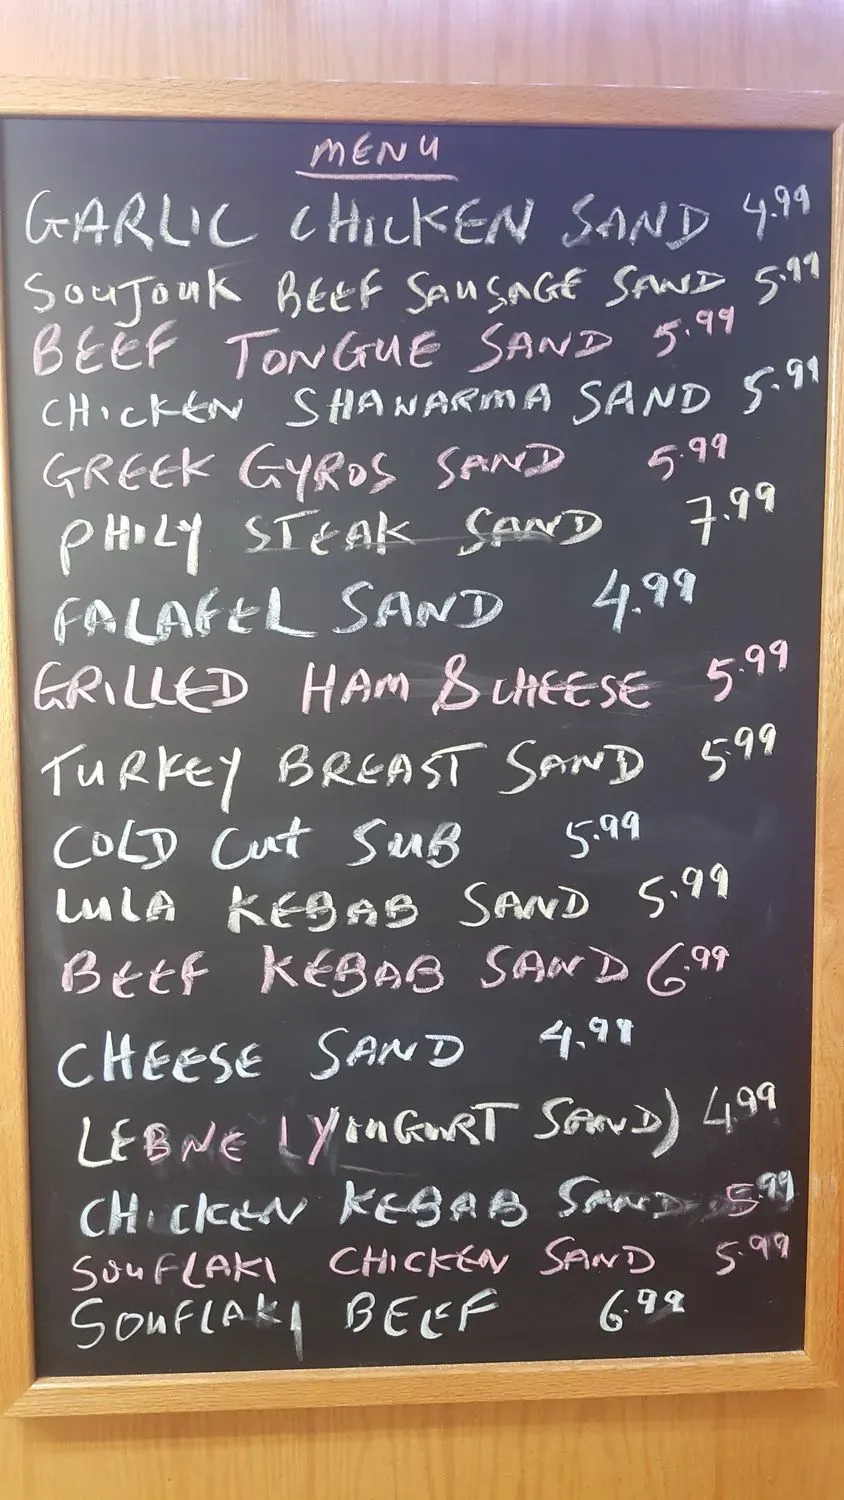 MENU
GARLIC CHICKEN SAND 4.99
SOUJOUK BEEF SAUSAGE SAND 5.99
BEEF TONGUE SAND 5.99
CHICKEN SHAWARMA SAND 5.99
GREEK GYROS SAND 5.99
PHILY STEAK SAND 7.99
FALAFEL SAND 4.99
GRILLED HAM & CHEESE 5.99
TURKEY BREAST SAND 5.99
COLD CUT SUB 5.99
LULA KEBAB SAND 5.99
BEEF KEBAB SAND 6.99
CHEESE SAND 4.99
LEBNE (YOUGURT SAND) 4.99
CHICKEN KEBAB SAND 5.99
SOUFLAKI CHICKEN SAND 5.99
SOUFLAKI BEEF 6.99